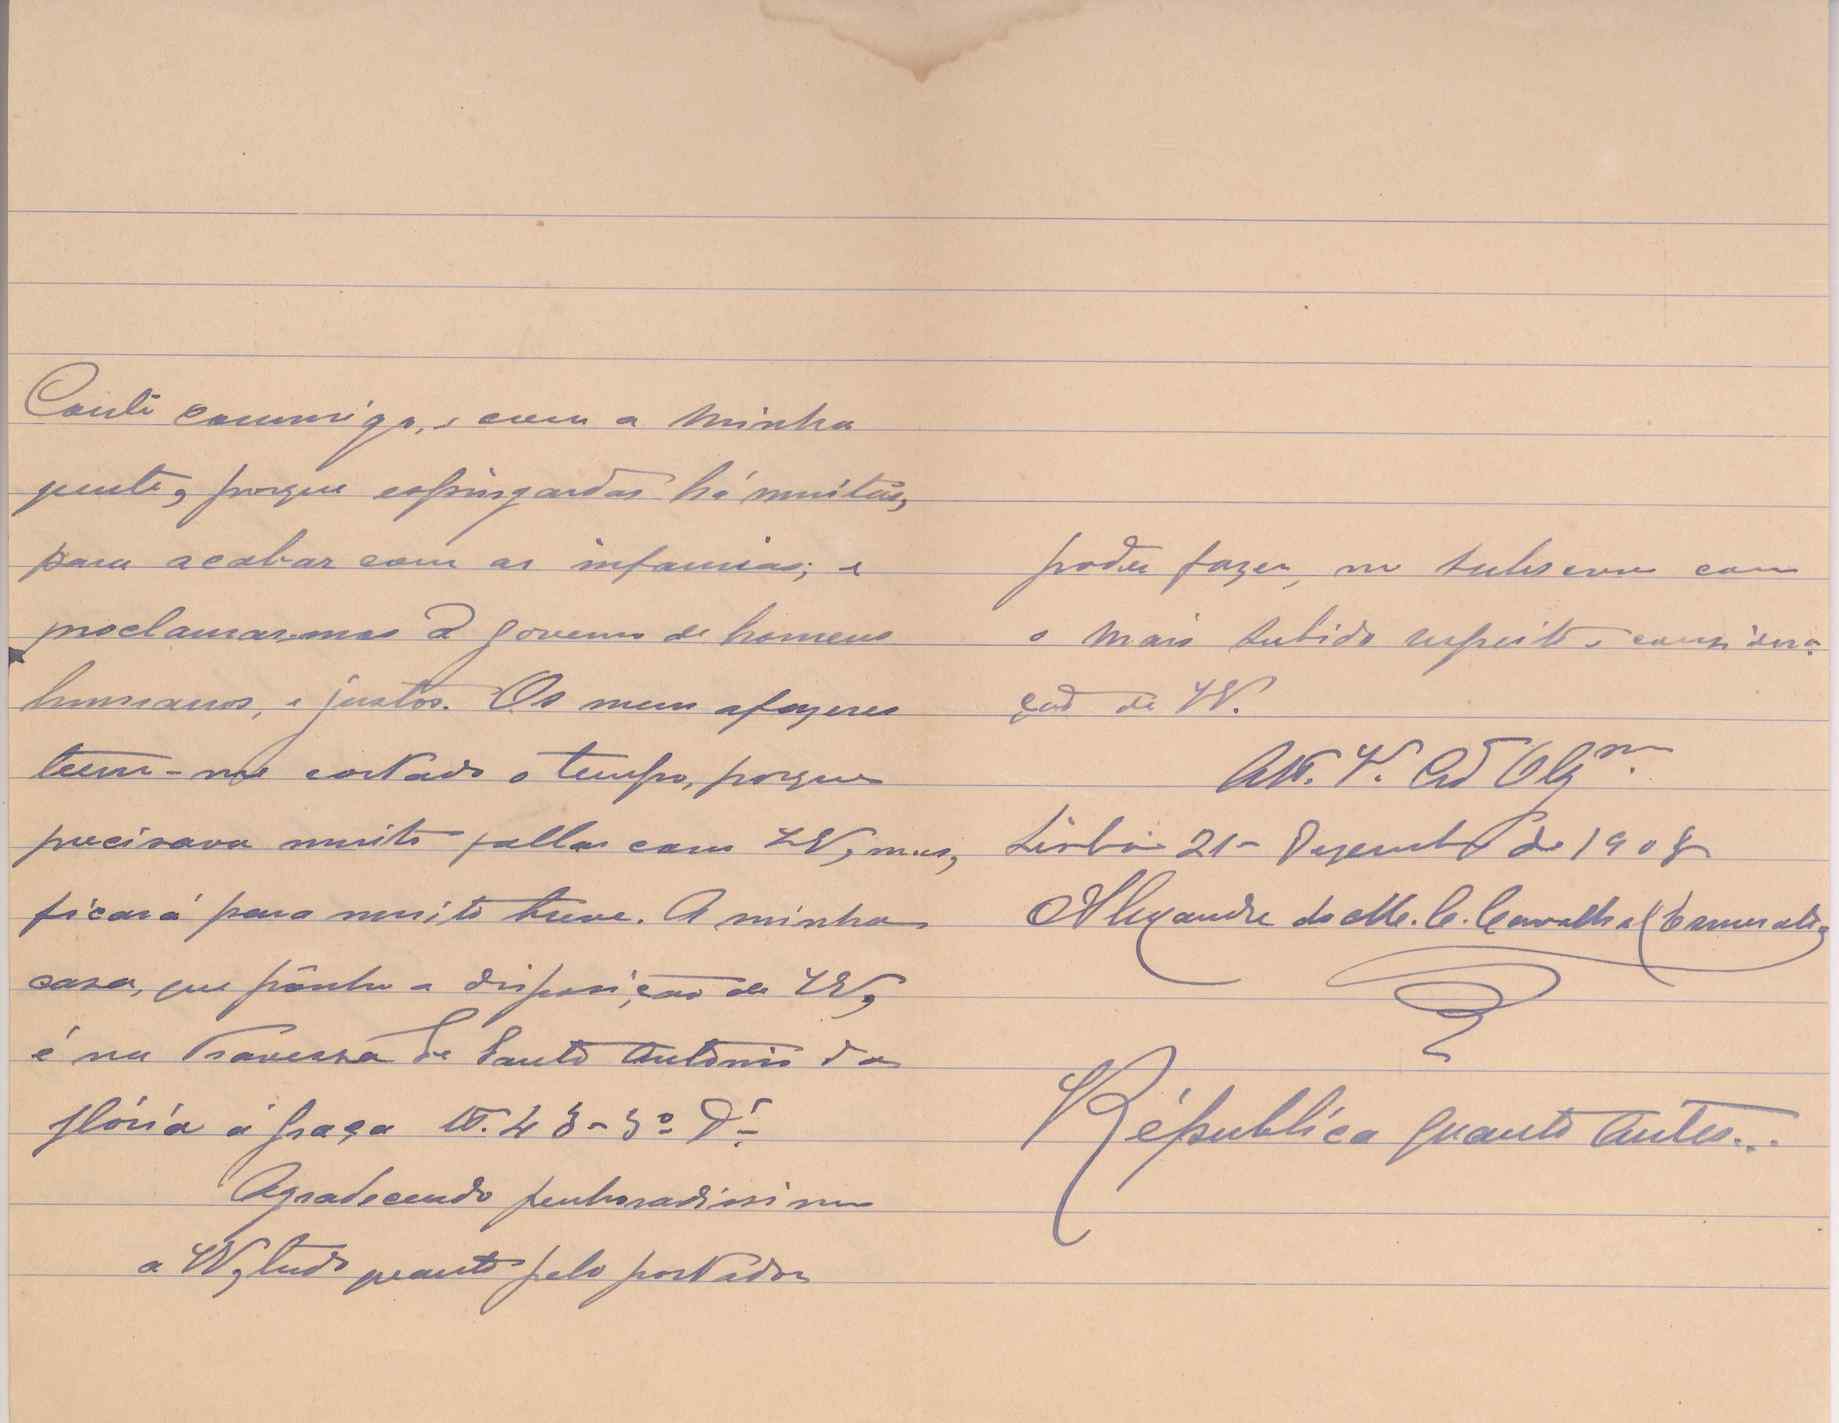 Conte commigo, e com a minha
gente, porque espingardas há muitas,
para acabar com as infamias; e
proclamaremos o governo de homens
humanos, e justos. Os meus afazeres
teem-me cortado o tempo, porque
precisava muito fallar com V, mas,
ficará para muito breve. A minha
casa, que pônho a disposição de V,
é na Travessa de Santo Antonio da
glória á graça N. 43-3º Dº
Agradecendo penhoradissimo
a V, tudo quanto pelo portador
poder fazer, me subscrevo com
o mais subido respeito e considera-
ção de V.
Att. V. Cdº Obgmº.
Lisboa 21- Dezembro de 1908
Alexandre de M. C. Carvalhal
Républica quanto antes...